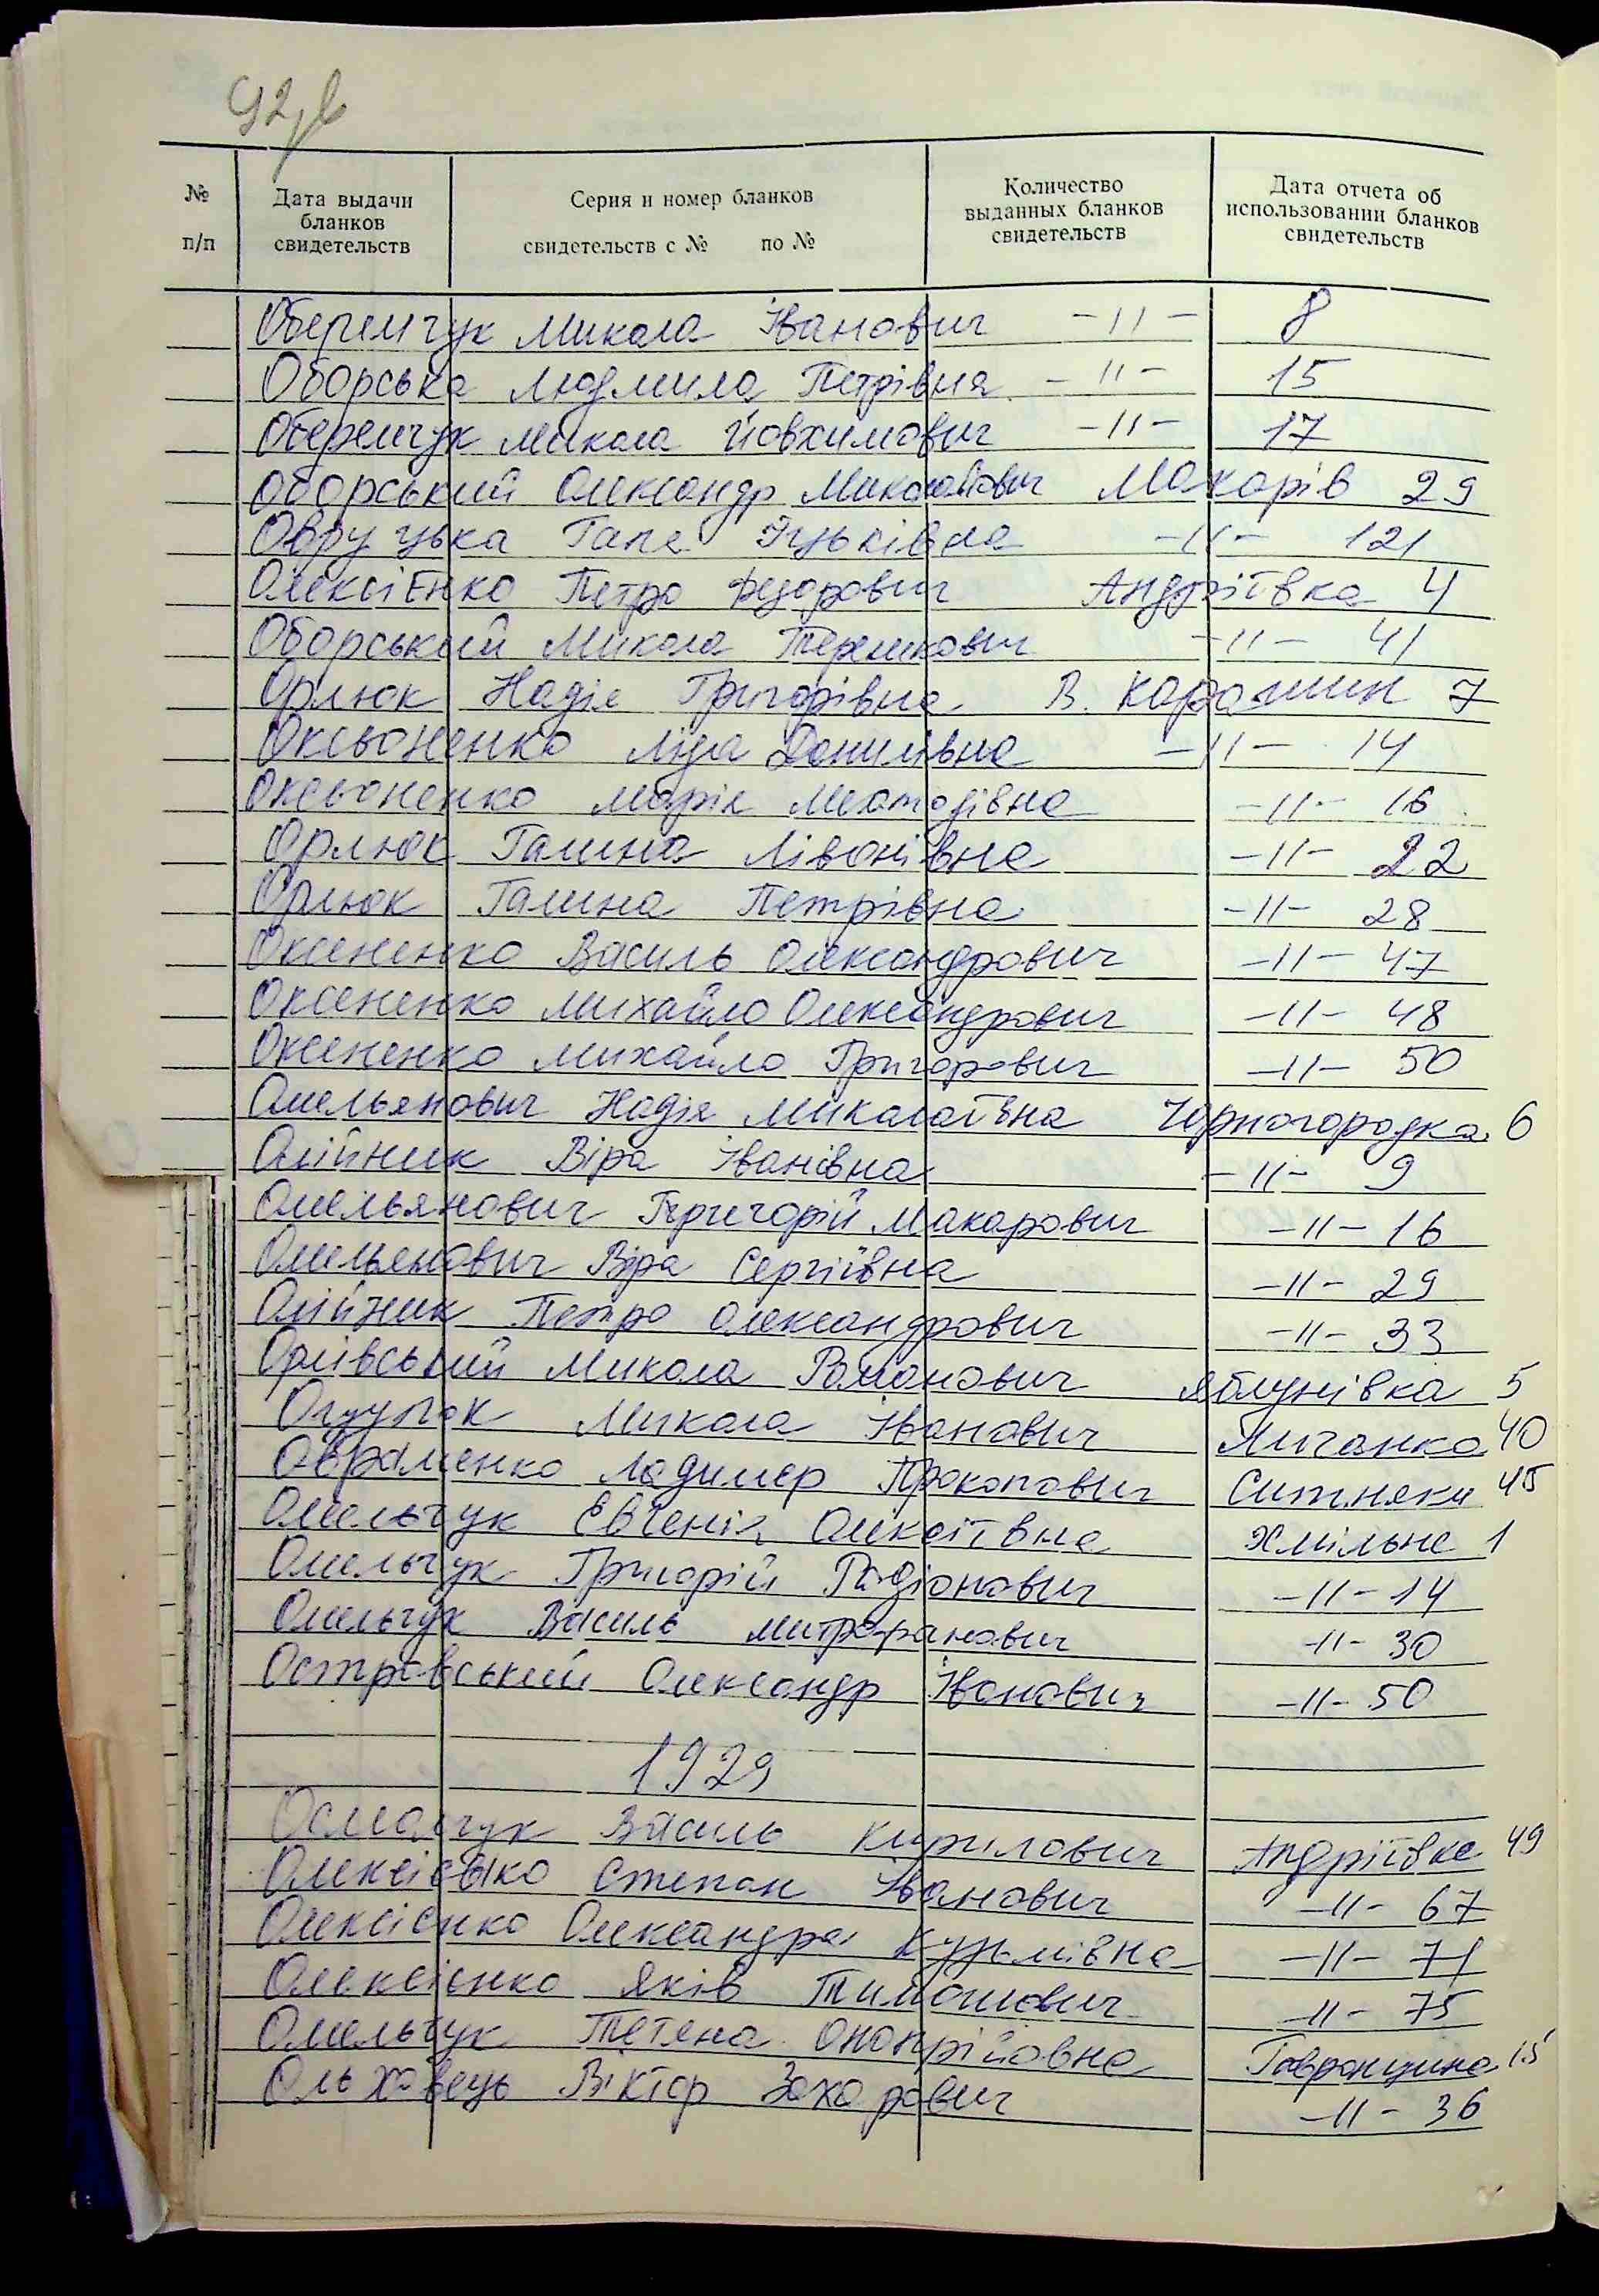 92
№ п/п
Дата выдачи бланков свидетельств
Серия и номер бланков свидетельств с № по №
Количество выданных бланков свидетельств
Дата отчета об использовании бланков свидетельств
Оберемчук Микола Іванович -11- 8
Оборська Людмила Петрівна -11- 15
Оберемчук Микола Йовхимович -11- 17
Оборський Олександр Миколайович Макарів 29
Овруцька Гапа Іцьківна -11- 121
Олексієнко Петро Федорович Андріївка 4
Оборський Микола Терешкович -11- 41
Орлюк Надія Григорівна В. Карашин 7
Оксьоненко Ліда Данилівна -11- 14
Оксьоненко Марія Методівна -11- 16
Орлюк Галина Лівонівна -11- 22
Орлюк Галина Петрівна -11- 28
Оксененко Василь Олександрович -11- 47
Оксененко Михайло Олександрович -11- 48
Оксененко Михайло Григорович -11- 50
Омельянович Надія Миколаївна Чорногородка 6
Олійник Віра Іванівна -11- 9
Омельянович Григорій Макарович -11- 16
Омельянович Віра Сергіївна -11- 29
Олійник Петро Олександрович -11- 33
Орлівський Микола Романович Яблунівка 5
Микола Іванович Личанка 40
Овраменко Ладимер Прокопович Ситняки 45
Омельчук Євгенія Олексіївна Хмільне 1
Омельчук Григорій Радіонович -11- 14
Омельчук Василь Митрофанович -11- 30
Островський Олександр Іванович -11- 50
1929
Осмалчук Василь Кирилович Андріївка 49
Олексієнко Степан Іванович -11- 67
Олексієнко Олександра Кузьмівна -11- 71
Олексієнко Яків Тимошович -11- 75
Омельчук Тетяна Онопрійовна Гавронщина 15
Ольховець Віктор Захарович -11- 36